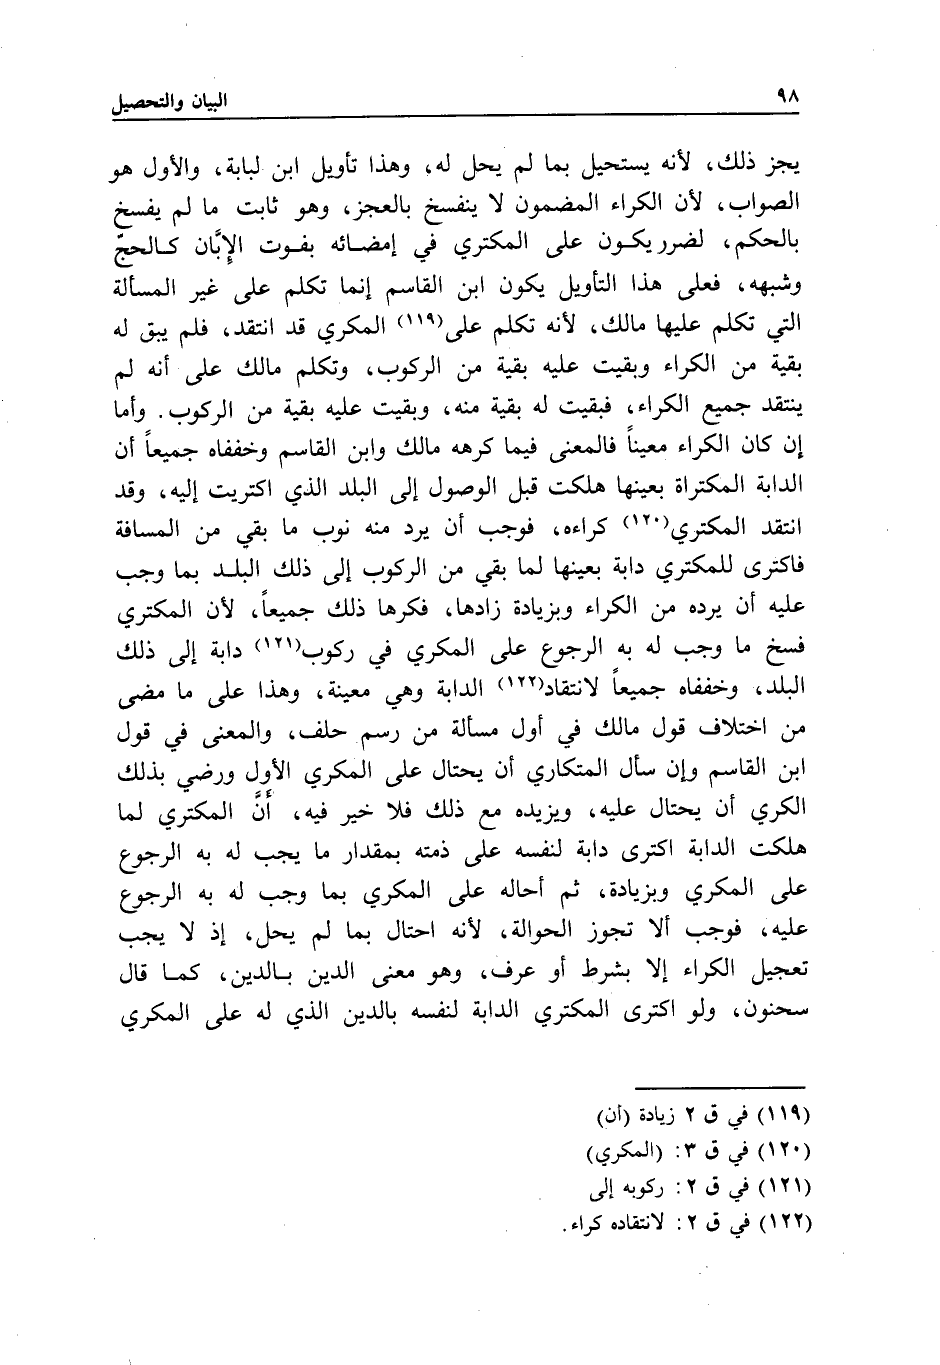 ٩٨
البيان والتحصيل
يجز ذلك، لأنه يستحيل بما لم يحل له، وهذا تأويل ابن لبابة، والأول هو
الصواب، لأن الكراء المضمون لا ينفسخ بالعجز، وهو ثابت ما لم يفسخ
بالحكم، لضرر يكون على المكتري في إمضائه بفوت الإِبَّان كالحجّ
وشبهه، فعلى هذا التأويل يكون ابن القاسم إنما تكلم على غير المسألة
التي تكلم عليها مالك، لأنه تكلم على(١١٩) المكري قد انتقد، فلم يبق له
بقية من الكراء وبقيت عليه بقية من الركوب، وتكلم مالك على أنه لم
ينتقد جميع الكراء، فبقيت له بقية منه، وبقيت عليه بقية من الركوب. وأما
إن كان الكراء معيناً فالمعنى فيما كرهه مالك وابن القاسم وخففاه جميعاً أن
الدابة المكتراة بعينها هلكت قبل الوصول إلى البلد الذي اكتريت إليه، وقد
انتقد المكتري(١٢٠) كراءه، فوجب أن يرد منه نوب ما بقي من المسافة
فاكترى للمكتري دابة بعينها لما بقي من الركوب إلى ذلك البلد بما وجب
عليه أن يرده من الكراء وبزيادة زادها، فكرها ذلك جميعاً، لأن المكتري
فسخ ما وجب له به الرجوع على المكري في ركوب(١٢١) دابة إلى ذلك
البلد، وخففاه جميعاً لانتقاد(١٢٢) الدابة وهي معينة، وهذا على ما مضى
من اختلاف قول مالك في أول مسألة من رسم حلف، والمعنى في قول
ابن القاسم وإن سأل المتكاري أن يحتال على المكري الأول ورضي بذلك
الكري أن يحتال عليه، ويزيده مع ذلك فلا خير فيه، أَنَّ المكتري لما
هلكت الدابة اكترى دابة لنفسه على ذمته بمقدار ما يجب له به الرجوع
على المكري وبزيادة، ثم أحاله على المكري بما وجب له به الرجوع
عليه، فوجب ألا تجوز الحوالة، لأنه احتال بما لم يحل، إذ لا يجب
تعجيل الكراء إلا بشرط أو عرف، وهو معنى الدين بالدين، كما قال
سحنون، ولو اكترى المكتري الدابة لنفسه بالدين الذي له على المكري
(١١٩) في ق ٢ زيادة (أن)
(١٢٠) في ق ٣: (المكري)
(١٢١) في ق ٢: ركوبه إلى
(١٢٢) في ق ٢: لانتقاده كراء.